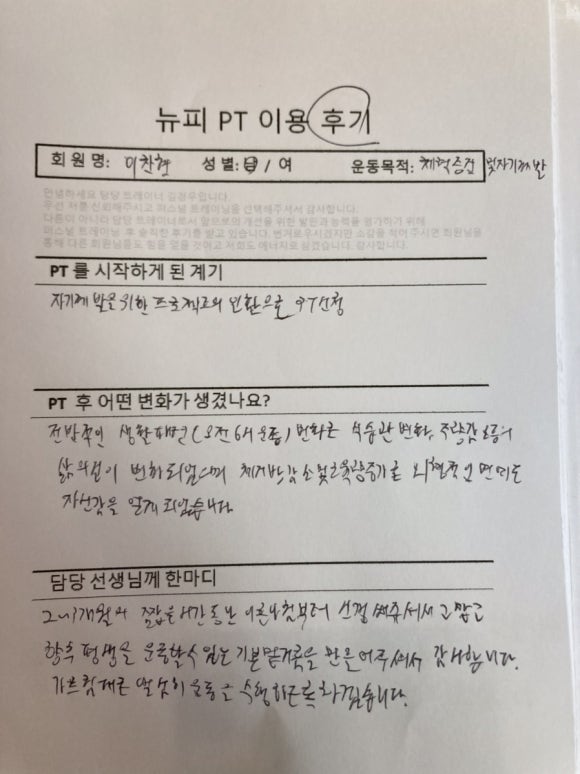 뉴피 PT 이용 후기
회원 명: 이찬현 성별: 남 / 여 운동목적: 체력증진 및 자기개발
안녕하세요 담당 트레이너 김정우입니다.
우선 저를 신뢰해주시고 퍼스널 트레이닝을 선택해주셔서 감사합니다.
다름이 아니라 담당 트레이너로서 앞으로의 개선을 위한 발판과 능력을 평가하기 위해
퍼스널 트레이닝 후 솔직한 후기를 받고 있습니다. 번거로우시겠지만 소감을 적어 주시면 회원님을
통해 다른 회원님들도 힘을 얻을 것이고 저희도 에너지로 삼겠습니다. 감사합니다.
PT 를 시작하게 된 계기
자기개발을 위한 프로젝트의 일환으로 PT신청
PT 후 어떤 변화가 생겼나요?
전반적인 생활패턴(오전 6시 운동) 변화로 식습관 변화, 등의
삶의 질이 변화되었으며 체지방 감소 및 근육량 증가로 외형적인 면에도
자신감을 얻게 되었습니다.
담당 선생님께 한마디
2~3개월의 짧은 시간동안 부터 신경 써주셔서 고맙고
향후 평생을 운동할 수 있는 기본 밑거름을 만들어 주셔서 감사합니다.
가르침대로 열심히 운동을 수행하도록 하겠습니다.